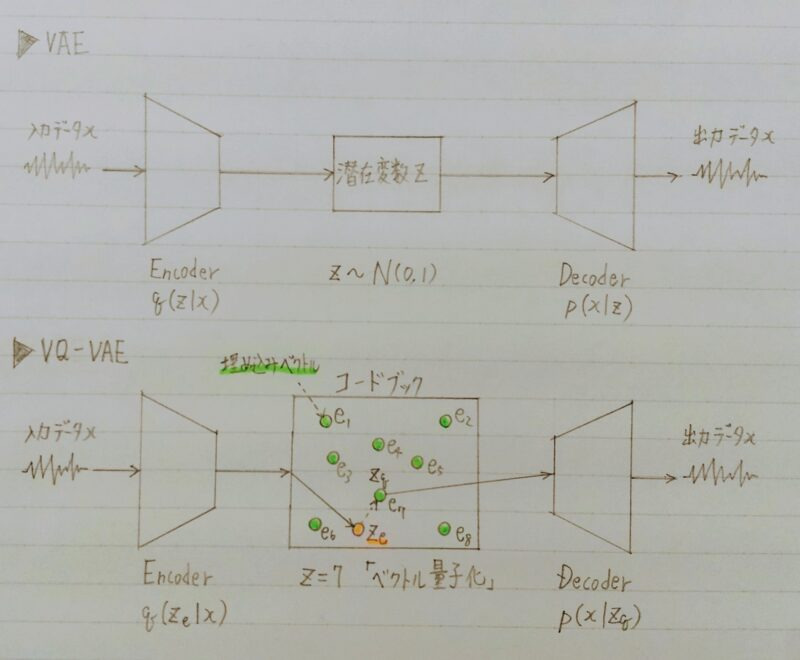 ▶ VAE
入力データx
潜在変数 Z
出力データx
Encoder
q(z|x)
z ~ N(0,1)
Decoder
p(x|z)
▶ VQ-VAE
埋め込みベクトル
コードブック
入力データx
e1
e2
e3
e4
e5
Zq
e7
e6
Ze
e8
出力データx
Encoder
q(Ze|x)
Z=7 「ベクトル量子化」
Decoder
p(x|Zq)